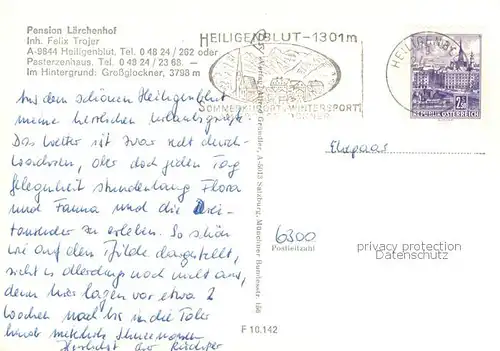 Pension Lärchenhof
Inh. Felix Trojer
A-9844 Heiligenblut, Tel. 0 48 24 / 262 oder
Pasterzenhaus. Tel. 0 48 24 / 23 68 —
Im Hintergrund: Großglockner, 3798 m
HEILIGENBLUT - 1301 m
SOMMERKURORT · WINTERSPORT
HEILIGENBL
REPUBLIK ÖSTERREICH
Aus dem schönen Heiligenblut
meine herzlichen Urlaubsgrüße
Das Wetter ist zwar recht durch-
wachsen, aber doch jeden Tag
Gelegenheit stundenlang Flora
und Fauna und die Drei-
tausender zu erleben. So schön
wie auf dem Bilde dargestellt,
sieht es allerdings noch nicht aus,
denn hier lagen vor etwa 2
Wochen noch bis in die Täler
Schneemassen
Herzlichst
Ehepaar
6300
Postleitzahl
A-5013 Salzburg, Münchner Bundesstr. 156
F 10.142
privacy protection
DELCAMPE